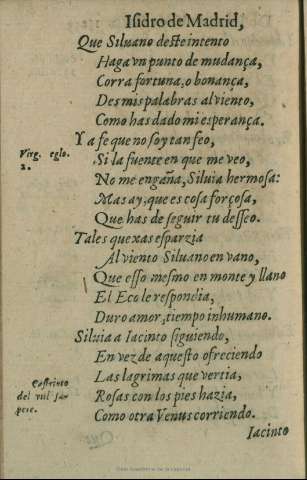 Isidro de Madrid,
Que Siluano deste intento
Haga vn punto de mudança,
Corra fortuna, o bonança,
Des mis palabras al viento,
Como has dado mi esperança.
Y a fe que no soy tan feo,
Virg. eglo.
2.
Si la fuente en que me veo,
No me engaña, Siluia hermosa:
Mas ay, que es cosa forçosa,
Que has de seguir tu desseo.
Tales quexas esparzia
Al viento Siluano en vano,
Que esso mesmo en monte y llano
El Eco le respondia,
Duro amor, tiempo inhumano.
Siluia a Iacinto siguiendo,
En vez de aquesto ofreciendo
Las lagrimas que vertia,
del
Rosas con los pies hazia,
Como otra Venus corriendo.
Iacinto